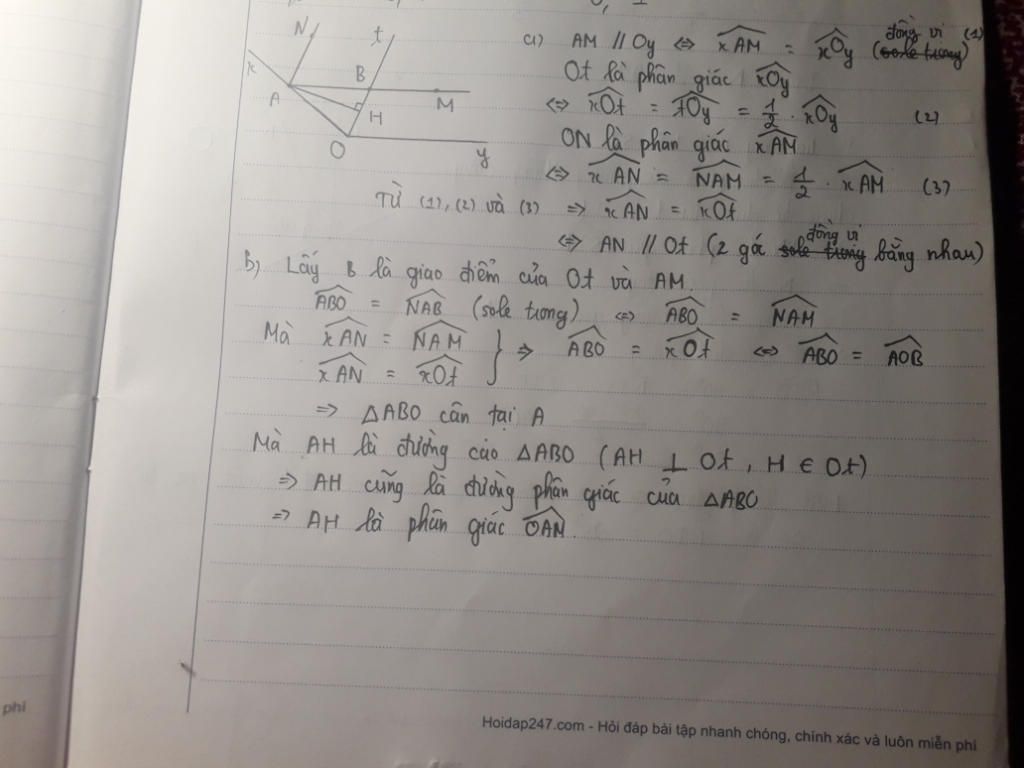 N
t
x
B
A
M
H
O
y
a) AM // Oy ⇔ \widehat{xAM} = \widehat{xOy} (đồng vị) (1)
Ot là phân giác \widehat{xOy}
⇔ \widehat{xOt} = \widehat{tOy} = 1/2 . \widehat{xOy} (2)
ON là phân giác \widehat{xAM}
⇔ \widehat{xAN} = \widehat{NAM} = 1/2 . \widehat{xAM} (3)
Từ (1), (2) và (3) ⇒ \widehat{xAN} = \widehat{xOt}
⇔ AN // Ot (2 góc đồng vị bằng nhau)
b) Lấy B là giao điểm của Ot và AM.
\widehat{ABO} = \widehat{NAB} (sole trong) ⇔ \widehat{ABO} = \widehat{NAM}
Mà \widehat{xAN} = \widehat{NAM} } ⇒ \widehat{ABO} = \widehat{xOt} ⇔ \widehat{ABO} = \widehat{AOB}
\widehat{xAN} = \widehat{xOt}
⇒ △ABO cân tại A
Mà AH là đường cao △ABO (AH ⊥ Ot, H ∈ Ot)
⇒ AH cũng là đường phân giác của △ABO
⇒ AH là phân giác \widehat{OAM}.
phí
Hoidap247.com - Hỏi đáp bài tập nhanh chóng, chính xác và luôn miễn phí